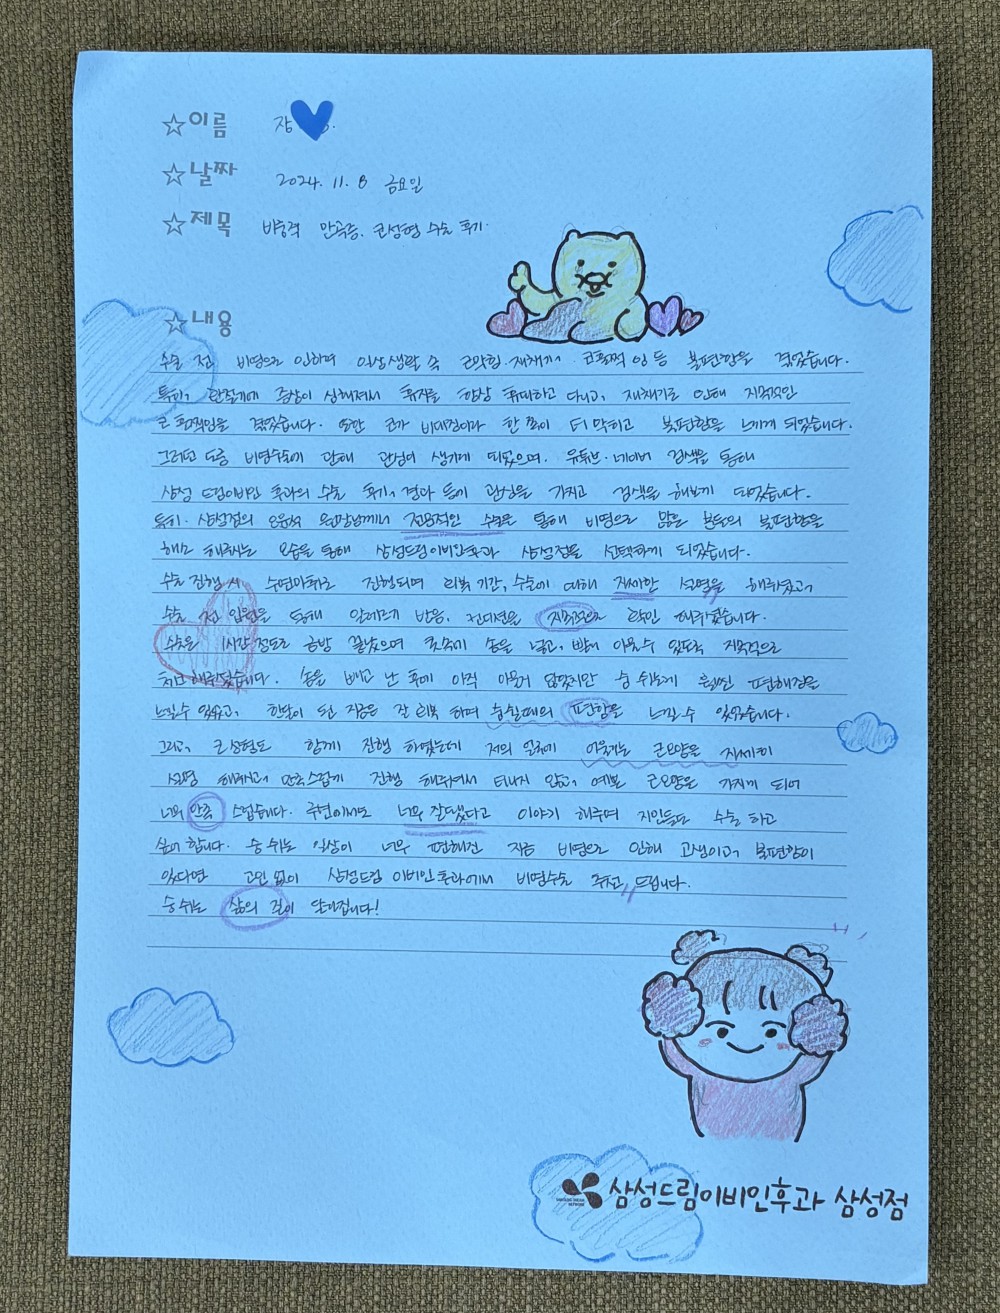 ☆이름 장
☆날짜 2024. 11. 8 금요일
☆제목 비중격 만곡증, 코성형 수술 후기.
☆내용
수술 전 비염으로 인하여 일상생활 속 코막힘, 재채기, 코훌쩍임 등 불편함을 겪었습니다.
특히, 환절기에 증상이 심해져서 휴지를 항상 휴대하고 다니고, 재채기로 인해 지속적인
코훌쩍임을 겪었습니다. 또한 코가 비대칭이라 한 쪽이 더 막히고 불편함을 느끼게 되었습니다.
그러던 도중 비염수술에 관해 관심이 생기게 되었으며, 유튜브·네이버 검색을 통해
삼성드림이비인후과의 수술 후기, 결과 등에 관심을 가지고 검색을 해보게 되었습니다.
특히, 삼성점의 원장님께서 전문적인 수술을 통해 비염으로 많은 분들의 불편함을
해소 해주시는 모습을 통해 삼성드림이비인후과 삼성점을 선택하게 되었습니다.
수술 진행 시 수면마취로 진행되며 회복 기간, 수술에 대해 자세한 설명을 해주셨고,
수술 전 을 통해 알레르기 반응, 컨디션을 확인 해주셨습니다.
수술은 1시간 정도로 금방 끝났으며 콧속에 솜을 넣고, 밤에 수 있도록
처 해주셨습니다. 솜을 빼고 난 후에 아직 아물지 않았지만 숨 쉬는게 훨씬 편해졌음을
느낄수 있었고, 한달이 된 지금은 잘 회복 하며 숨쉴때의 편함을 느낄수 있었습니다.
그리고, 코성형도 함께 진행 하였는데 저의 얼굴에 어울리는 코모양을 자세히
설명 해주시고, 만족스럽게 진행 해주셔서 티나지 않고, 예쁜 코모양을 가지게 되어
너무 만족 스럽습니다. 주변에서도 너무 잘됐다고 이야기 해주며 지인들도 수술 하고
싶어 합니다. 숨 쉬는 일상이 너무 편해진 지금 비염으로 인해 고생이고, 불편함이
있다면 고민 없이 삼성드림 이비인후과에서 비염수술 추천 드립니다.
숨 쉬는 삶의 질이 달라집니다!
삼성드림이비인후과 삼성점